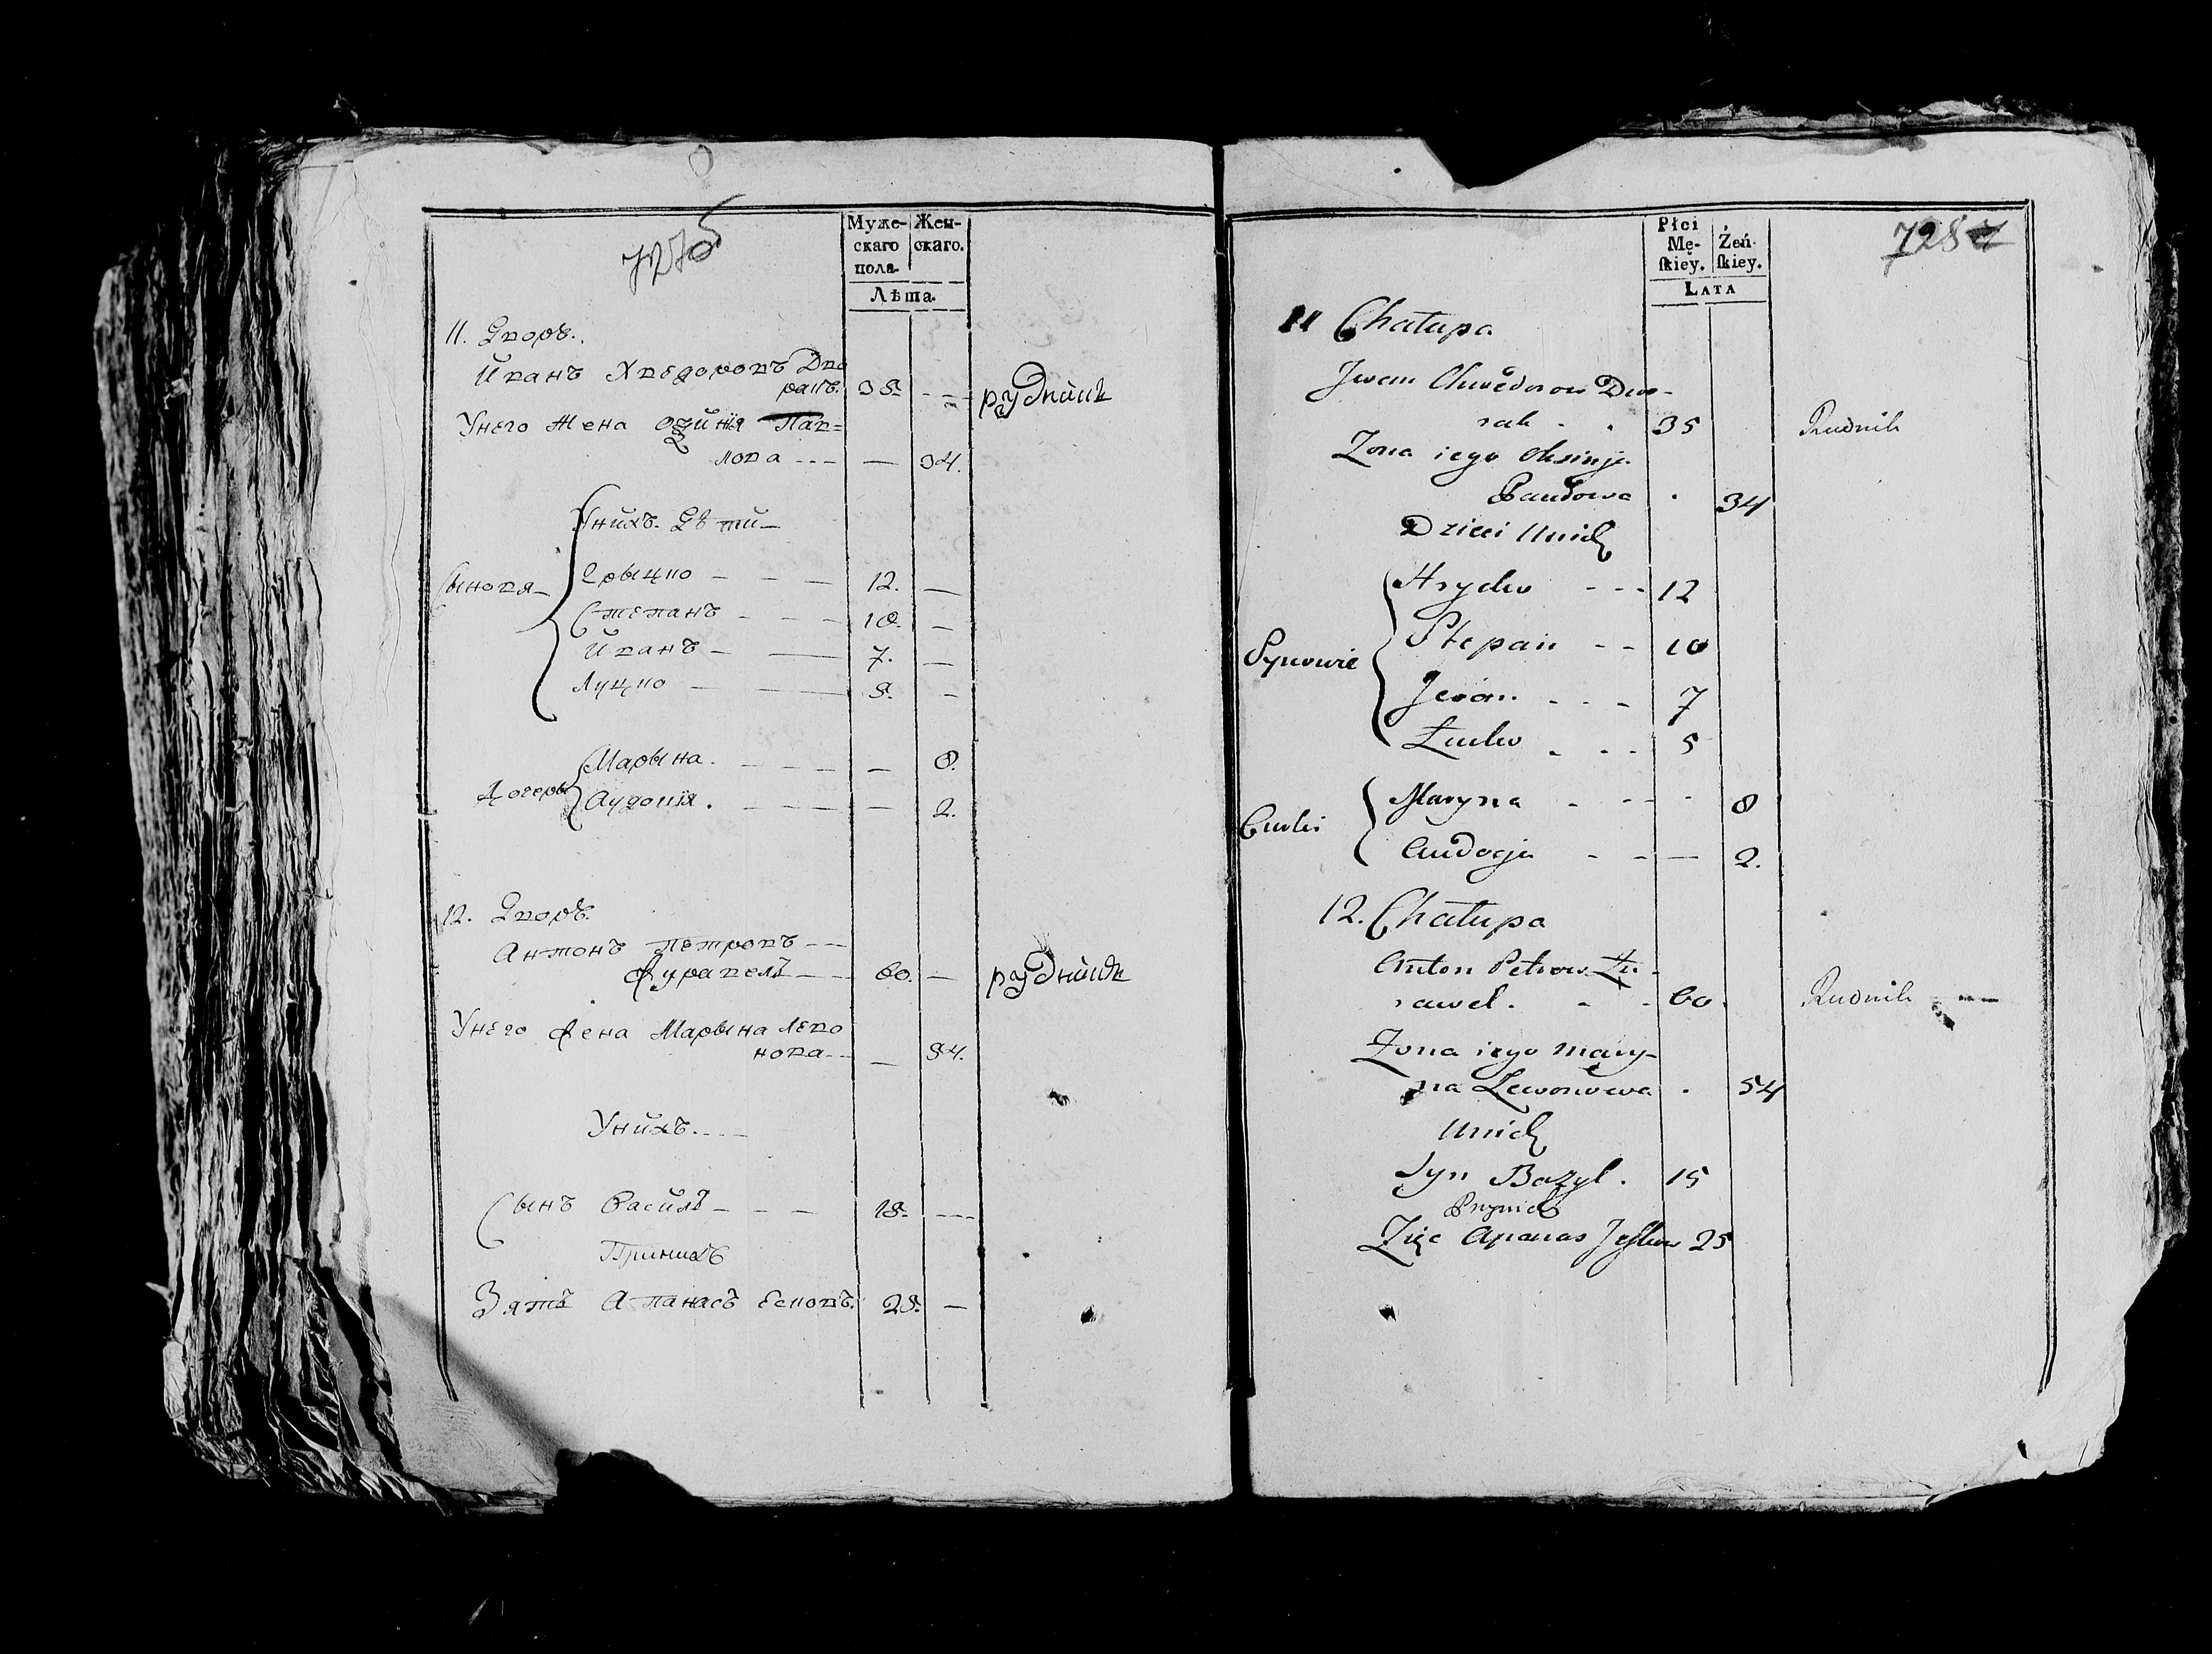 727
Муже-
скаго
пола.
Жен-
скаго.
Лѣта.
11. Дворъ.
Иванъ Хведоровъ Дво
ракъ. 35. - - - рудникъ
Унего Жена Ѯиня Пав=
лова - - - — 34.
Унихъ. Дѣти -
Сыновя -
Грыцко - - - 12. —
Степанъ - - - 10. —
Иванъ - — 7. —
Луцко - — 5. -
Дочеры
Марына. - - - - — 8.
Аудоція. - - - - — 2.
12. Дворъ.
Антонъ Петровъ - -
Журавель - - 60. — рудникъ
Унего Жена Марына Лево
нова - - — 54.
Унихъ. - - -
Сынъ Василь - - - 15. - - -
Примыхъ
Зять Апанасъ Еськовъ. 25. —
728
Płci
Mę-
ſkiey.
Żeń-
ſkiey.
LATA
11 Chałupa
Jwan Chwedorow Dwo-
rak . . 35 Rudnik
Zona iego Oksinja
Pawłowa . 34
Dzieci Unich
Synowie
Hryćko - - - 12
Stepan - - 10
Jwan. - - - 7
Łućko - - - 5
Curki
Maryna - - - - 8
Audocja - - — 2.
12. Chałupa
Anton Petrow Żu-
rawel. - - 60. Rudnik
Zona iego Mary-
na Lewonowa . 54
Unich
Syn Bazyl. 15
Zięc Apanas Jeſkow 25